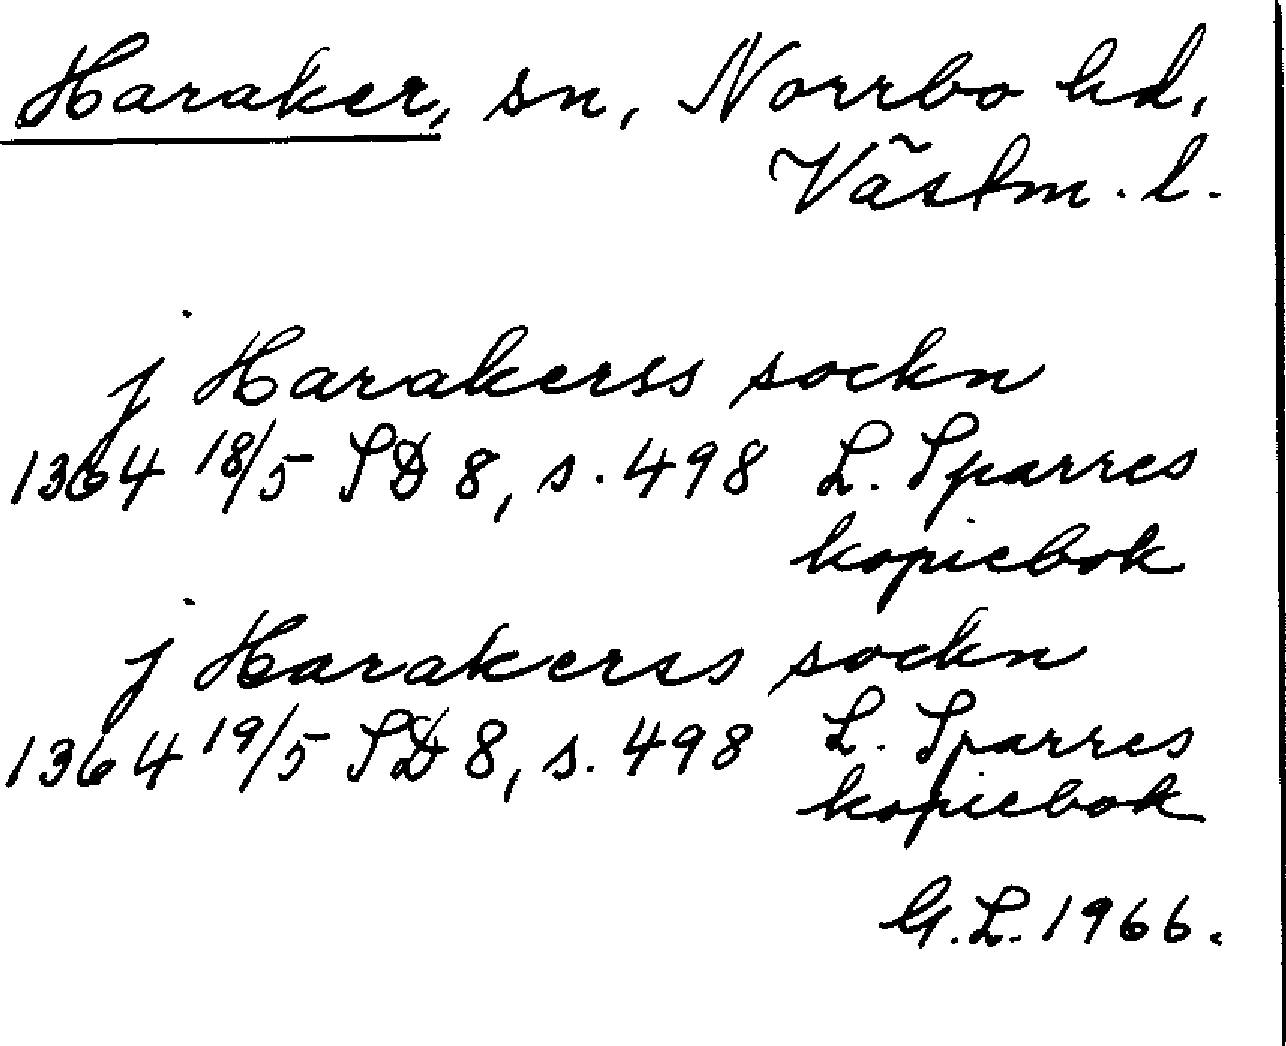 Haraker, sn, Norrbo hd,
Västm. l.
j Harakerss sockn
1364 18/5 SD 8, s. 498 L. Sparres
kopiebok
j Harakerss sockn
1364 19/5 SD 8, s. 498 L. Sparres
kopiebok
G.L. 1966.